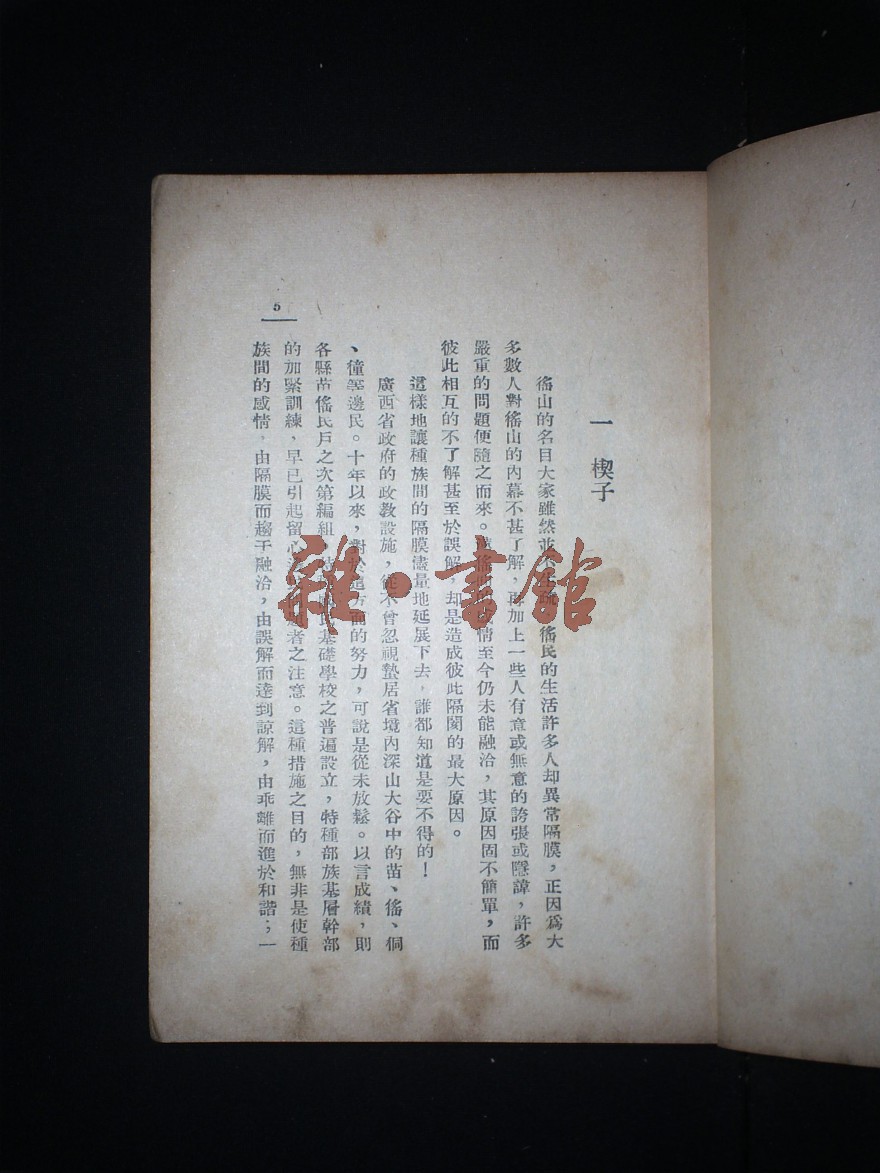 一　楔子
徭山的名目大家雖然並　　　徭民的生活許多人却異常隔膜，正因爲大
多數人對徭山的內幕不甚了解，再加上一些人有意或無意的誇張或隱諱，許多
嚴重的問題便隨之而來。　　　　情至今仍未能融洽，其原因固不簡單，而
彼此相互的不了解甚至於誤解，却是造成彼此隔閡的最大原因。
這樣地讓種族間的隔膜儘量地延展下去，誰都知道是要不得的！
廣西省政府的政教設施，從不曾忽視蟄居省境內深山大谷中的苗、徭、侗
、僮等邊民。十年以來，對於這方面的努力，可說是從未放鬆。以言成績，則
各縣苗徭民戶之次第編組，　　　民基礎學校之普遍設立，特種部族基層幹部
的加緊訓練，早已引起留心　　　題者之注意。這種措施之目的，無非是使種
族間的感情，由隔膜而趨于融洽，由誤解而達到諒解，由乖離而進於和諧；一
5
雜·書館